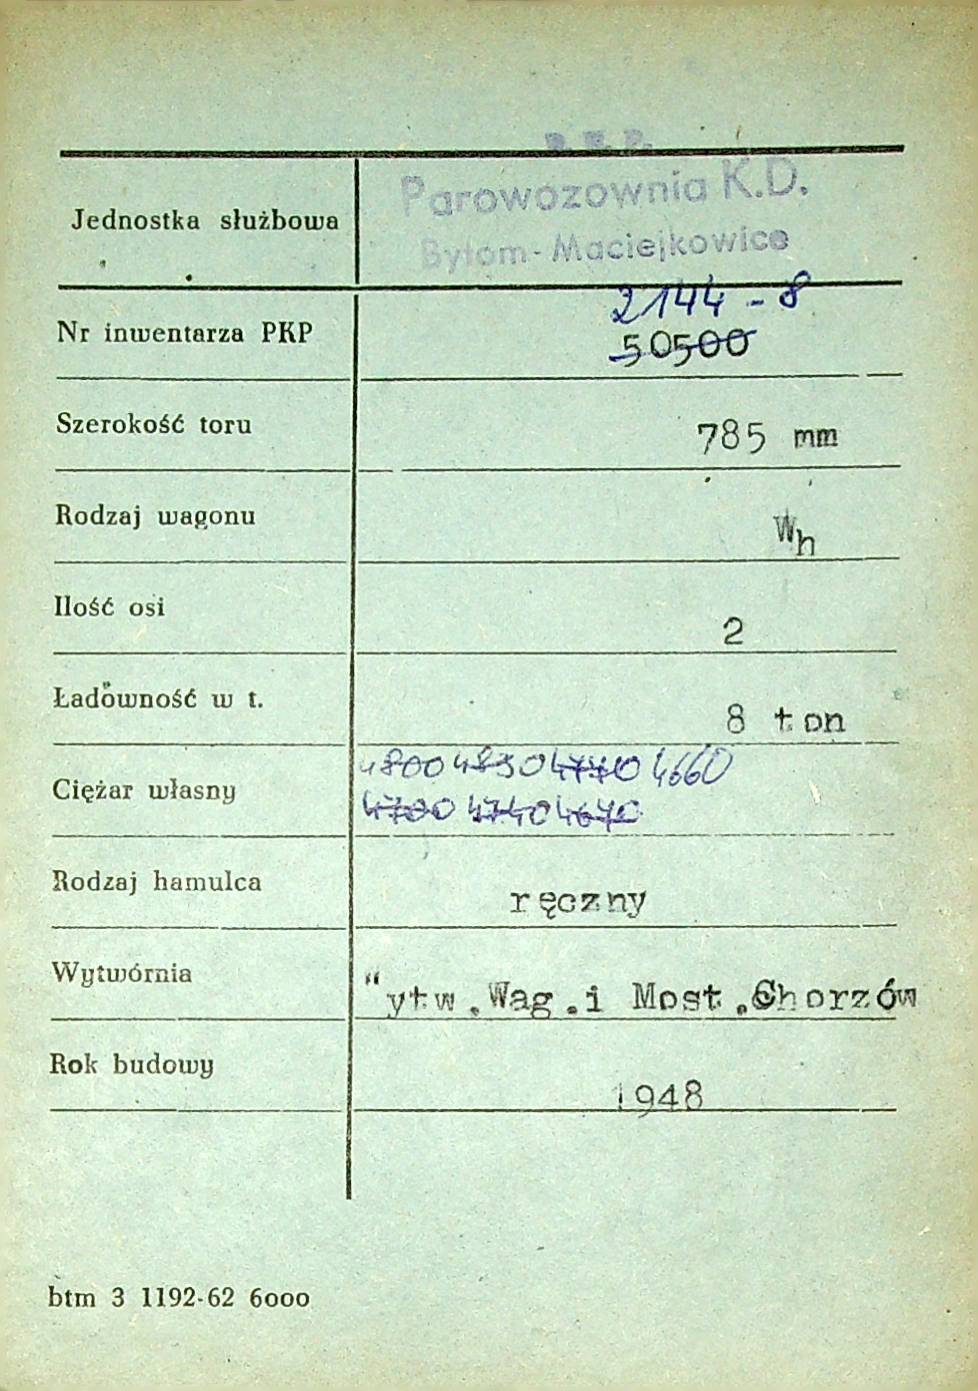 P. K. P.
Parowozownia K.D.
Bytom-Maciejkowice
Jednostka służbowa
2144-8
Nr inwentarza PKP
50500
Szerokość toru 785 mm
Rodzaj wagonu Wh
Ilość osi 2
Ładowność w t. 8 ton
4800 4830 4770 4660
Ciężar własny
4700 4740 4670
Rodzaj hamulca ręczny
Wytwórnia "ytw.Wag.i Most.Chorzów
Rok budowy 1948
btm 3 1192-62 6000